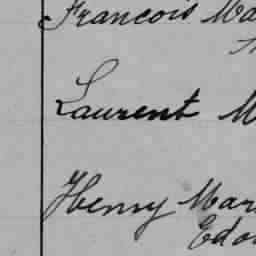 Francois Ma
Laurent M
Henry Mar
Edo